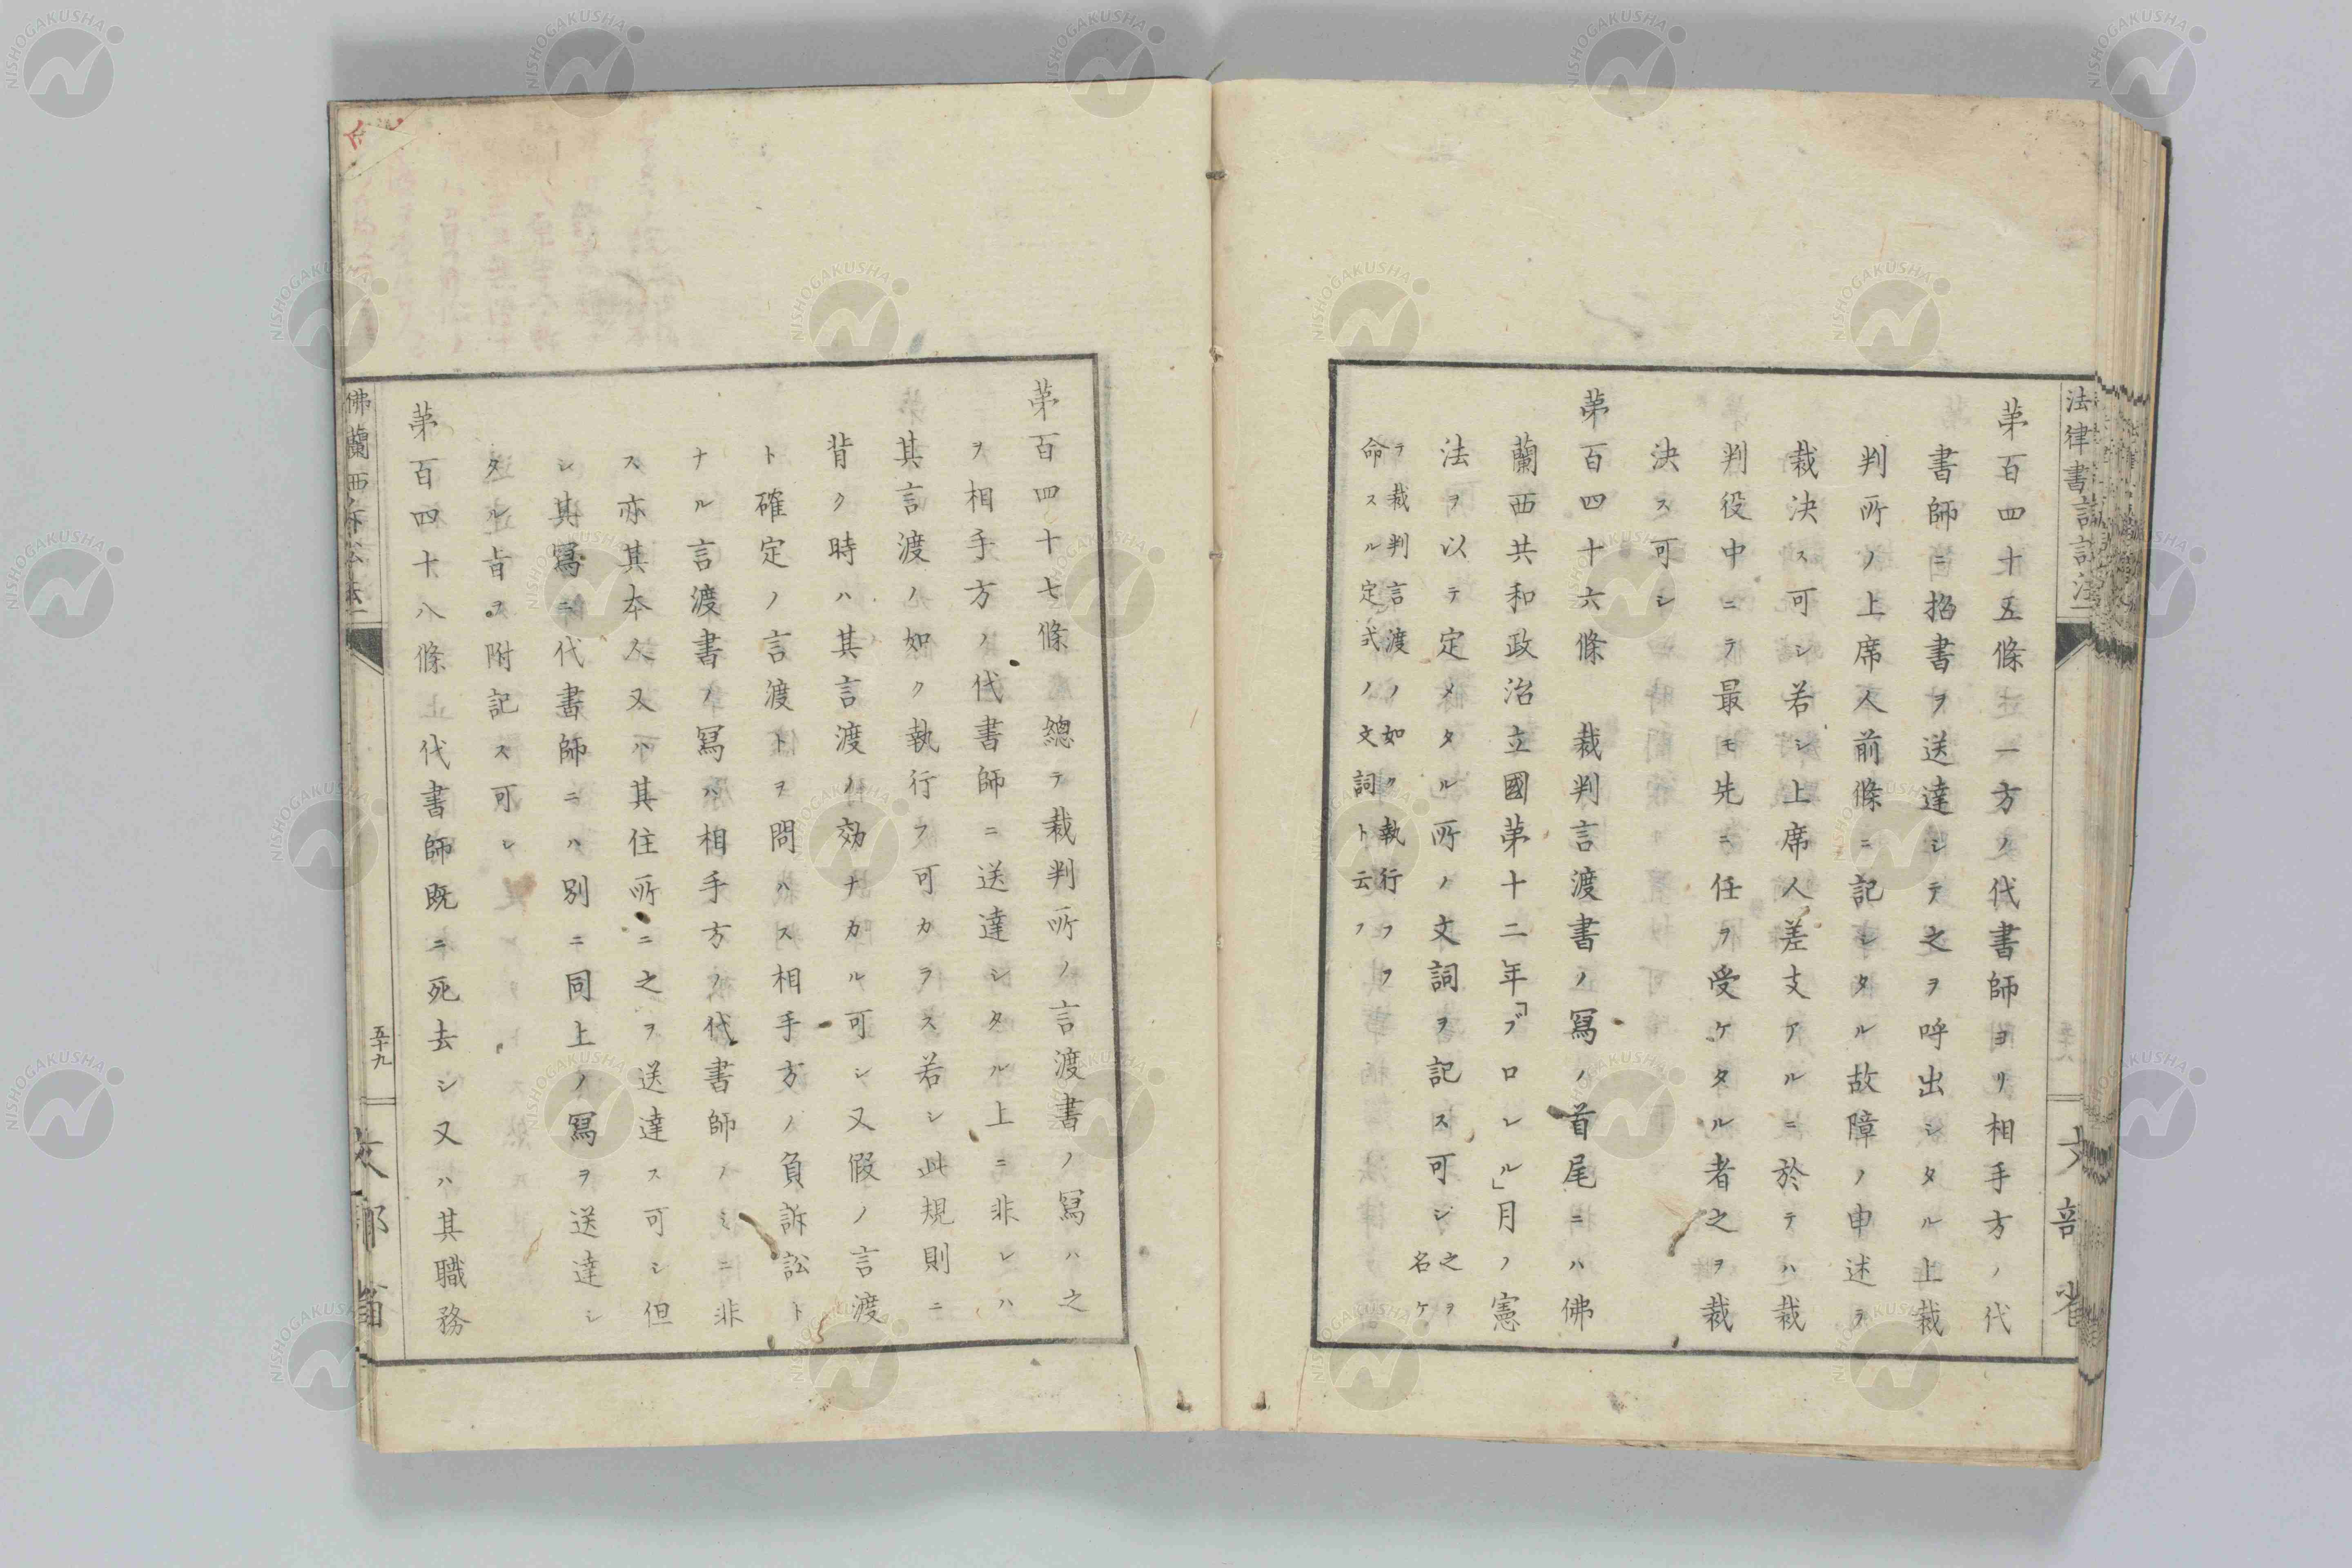 第百四十五條 一方ノ代書師ヨリ相手方ノ代
書師ニ招書ヲ送達シテ之ヲ呼出シタル上裁
判所ノ上席人前條ニ記シタル故障ノ申述ヲ
裁決ス可シ若シ上席人差支アルニ於テハ裁
判役中ニテ最モ先ニ任ヲ受ケタル者之ヲ裁
決ス可シ
第百四十六條 裁判言渡書ノ寫ノ首尾ニハ佛
蘭西共和政治立國第十二年「ブロレル」月ノ憲
法ヲ以テ定メタル所ノ文詞ヲ記ス可シ之ヲ名ケ
ヲ裁判言渡ノ如ク執行フヲ
命スル定式ノ文詞ト云フ
文部省
第百四十七條 總テ裁判所ノ言渡書ノ寫ハ之
ヲ相手方ノ代書師ニ送達シタル上ニ非レハ
其言渡ノ如ク執行フ可カラス若シ此規則ニ
背ク時ハ其言渡ノ効ナカル可シ又假ノ言渡
ト確定ノ言渡トヲ問ハス相手方ノ負訴訟ト
ナル言渡書ノ寫ハ相手方ノ代書師ノミニ非
ス亦其本人又ハ其住所ニ之ヲ送達ス可シ但
シ其寫ニ代書師ニハ別ニ同上ノ寫ヲ送達シ
タル旨ヲ附記ス可シ
第百四十八條 代書師既ニ死去シ又ハ其職務
佛蘭西
五十九
NISHOGAKUSHA